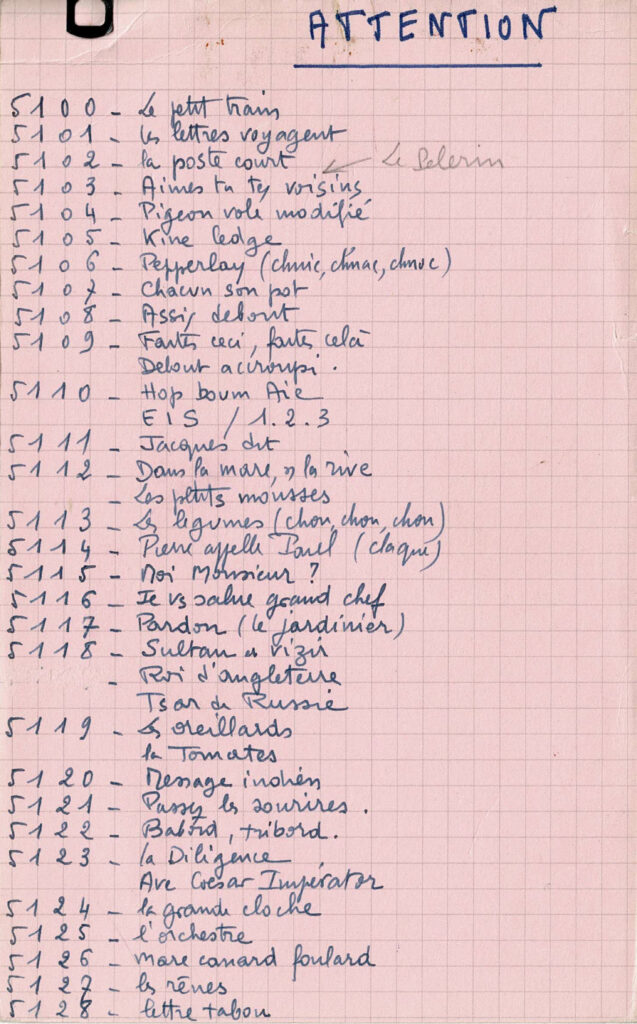 ATTENTION
5100 - Le petit train
5101 - les lettres voyagent
5102 - la poste court
← Le Pelerin
5103 - Aimes tu tes voisins
5104 - Pigeon vole modifié
5105 - Kine ledge
5106 - Pepperlay (chmic, chmac, chmoc)
5107 - Chacun son pot
5108 - Assis debout
5109 - Faites ceci, faites celà
Debout accroupi.
5110 - Hop boum Aie
EIS / 1.2.3
5111 - Jacques dit
5112 - Dans la mare, la rive
- Les petits mousses
5113 - Les legumes (chou, chou, chou)
5114 - Pierre appelle Paul (claque)
5115 - Moi Monsieur ?
5116 - Je vs salue grand chef
5117 - Pardon (le jardinier)
5118 - Sultan et vizir
- Roi d'angleterre
Tsar de Russie
5119 - Les oreillards
la Tomates
5120 - Message indien
5121 - Passez les sourires.
5122 - Babord, tribord.
5123 - la Diligence
Ave Coesar Impérator
5124 - la grande cloche
5125 - l'orchestre
5126 - mare canard foulard
5127 - les rênes
5128 - lettre tabou